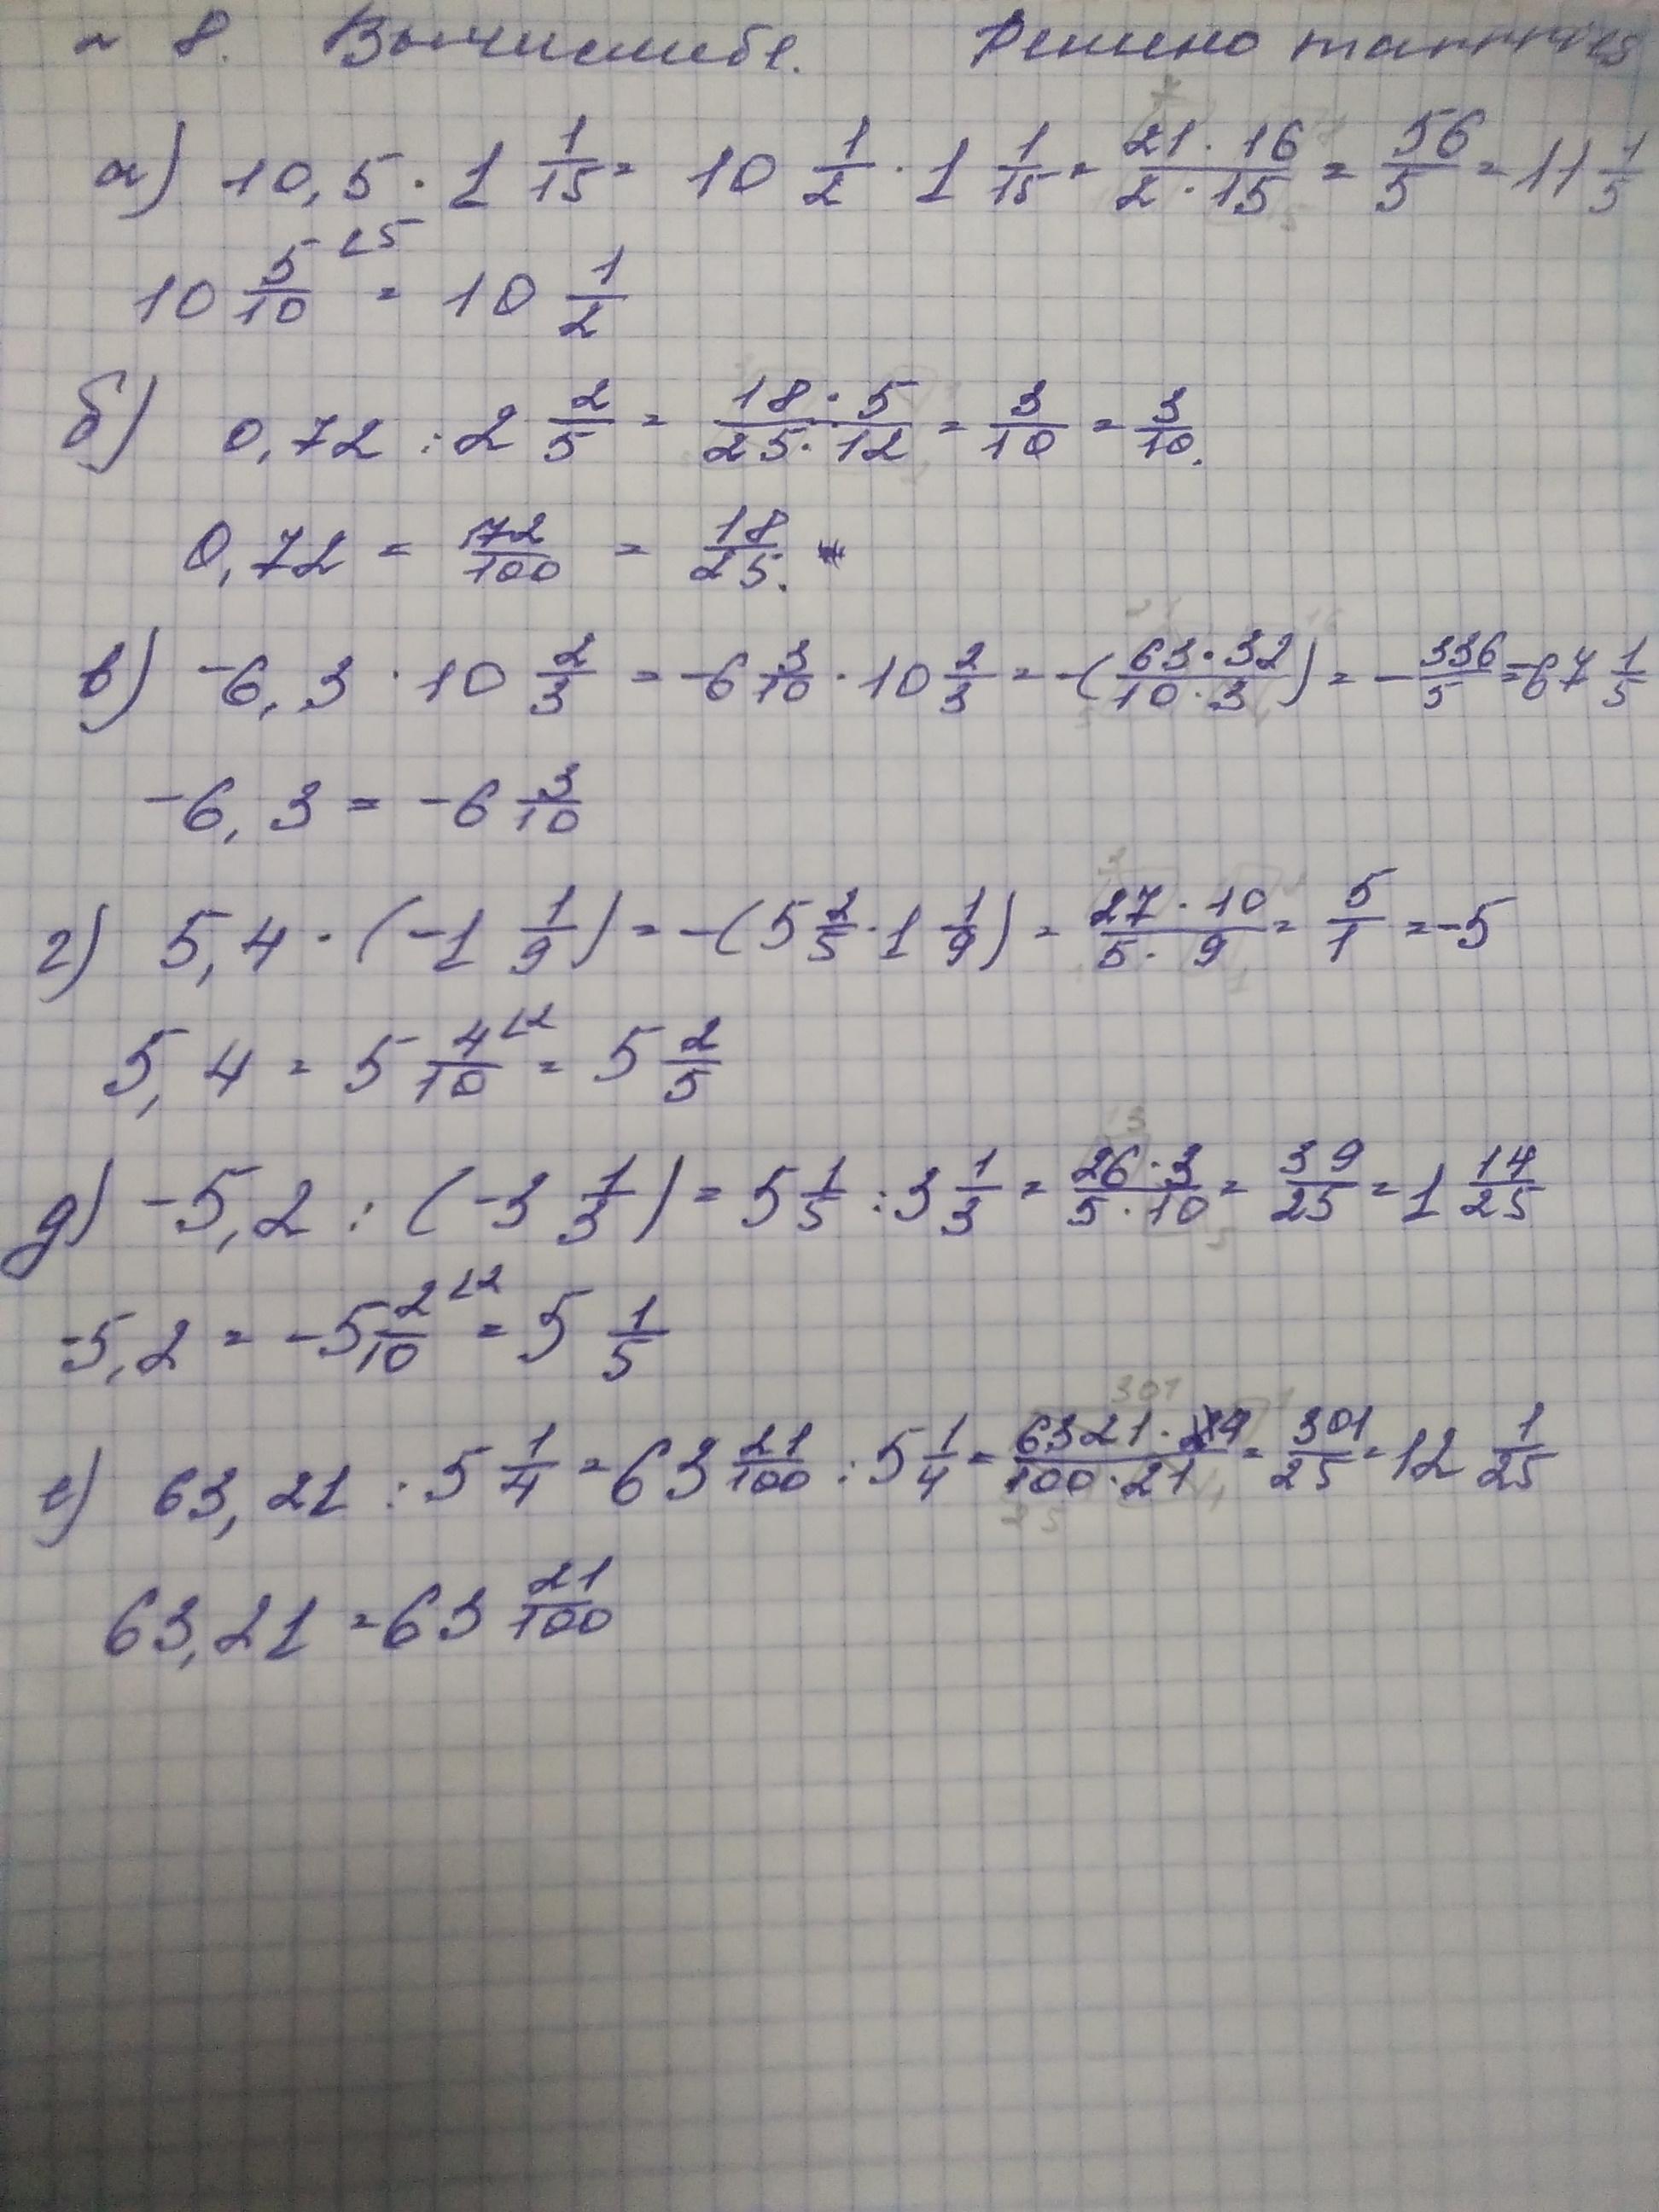 № 8. Вычислите. Решено
а) 10,5 · 1 1/15 = 10 1/2 · 1 1/15 = 21 · 16 / 2 · 15 = 56/5 = 11 1/5
10 5/10 ∠5 = 10 1/2
б) 0,72 : 2 2/5 = 18 · 5 / 25 · 12 = 3/10 = 3/10.
0,72 = 72/100 = 18/25.
в) -6,3 · 10 2/3 = -6 3/10 · 10 2/3 = -(63 · 32 / 10 · 3) = -336/5 = -67 1/5
-6,3 = -6 3/10
г) 5,4 · (-1 1/9) = -(5 2/5 · 1 1/9) = 27 · 10 / 5 · 9 = 5/1 = -5
5,4 = 5 4/10 ∠2 = 5 2/5
д) -5,2 : (-3 1/3) = 5 1/5 : 3 1/3 = 26 · 3 / 5 · 10 = 39/25 = 1 14/25
-5,2 = -5 2/10 ∠2 = 5 1/5
е) 63,21 : 5 1/4 = 63 21/100 : 5 1/4 = 6321 · 4 / 100 · 21 = 301/25 = 12 1/25
63,21 = 63 21/100